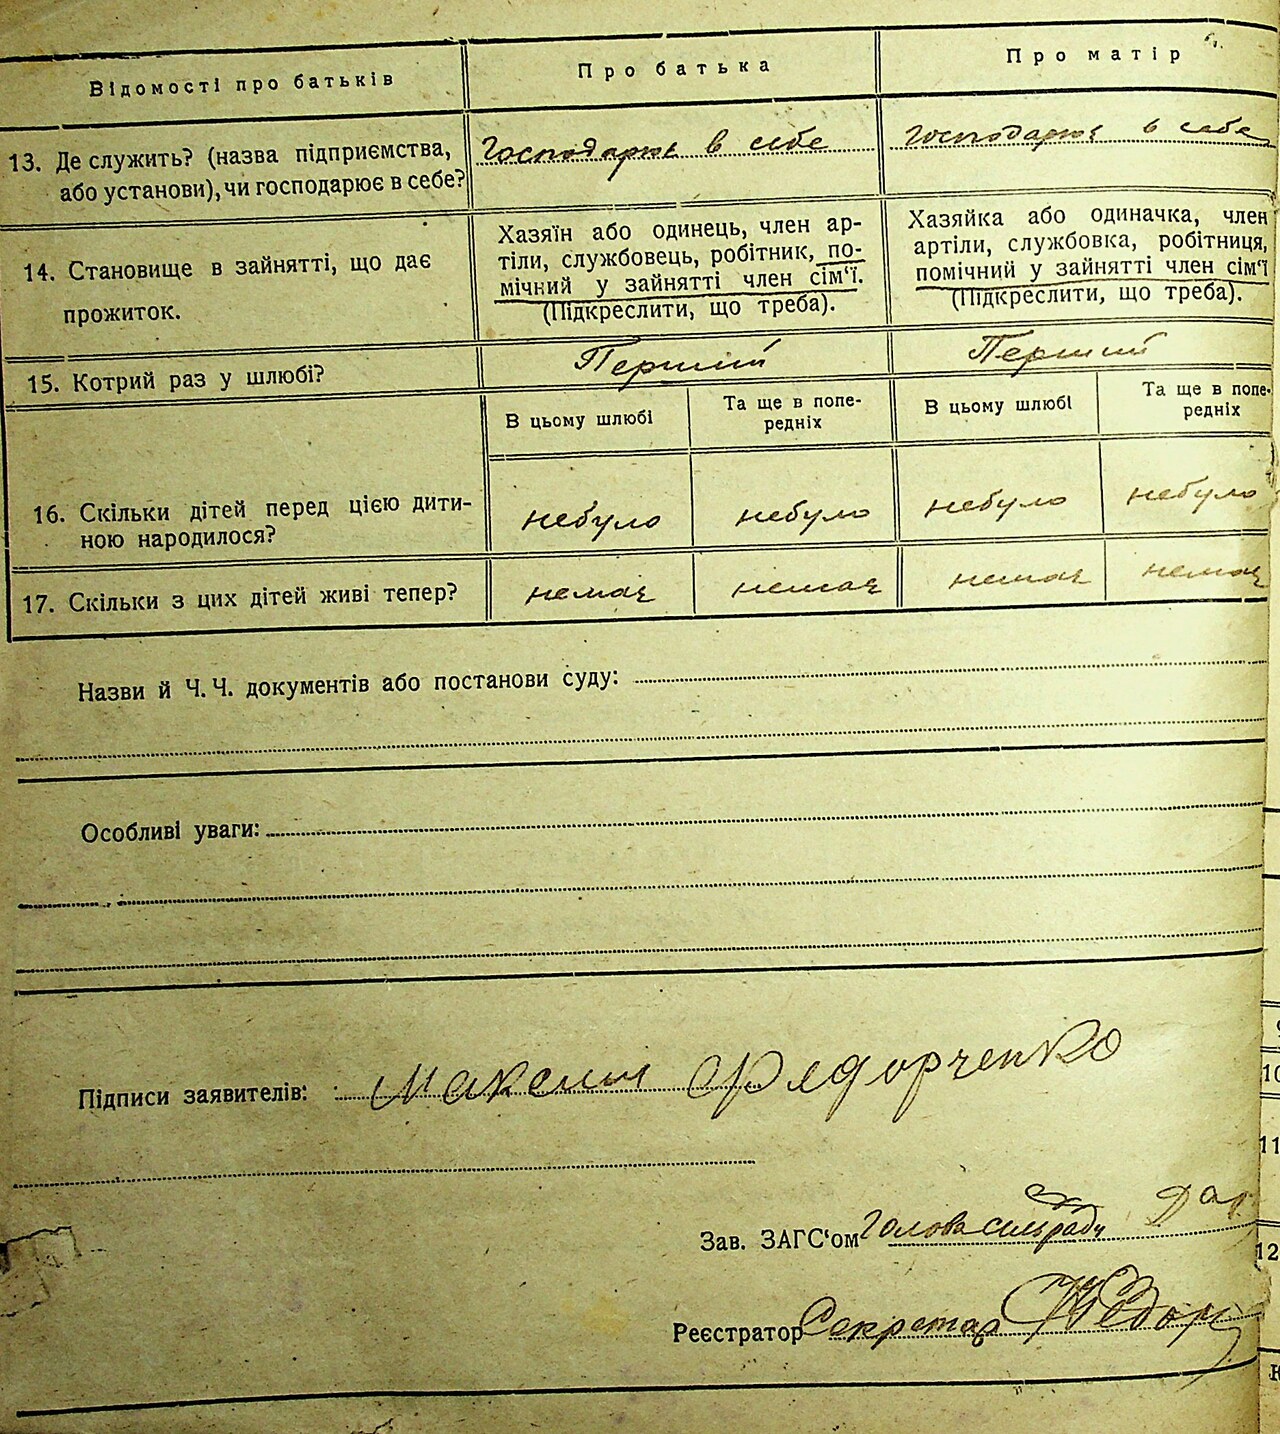 Відомості про батьків
Про батька
Про матір
13. Де служить? (назва підприємства,
або установи), чи господарює в себе?
Господарює в себе
господарює в себе
14. Становище в зайнятті, що дає
прожиток.
Хазяїн або одинець, член ар-
тіли, службовець, робітник, по-
мічний у зайнятті член сім'ї.
(Підкреслити, що треба).
Хазяйка або одиначка, член
артіли, службовка, робітниця,
помічний у зайнятті член сім'ї
(Підкреслити, що треба).
15. Котрий раз у шлюбі?
Перший
Перший
В цьому шлюбі
Та ще в попе-
редніх
В цьому шлюбі
Та ще в попе-
редніх
16. Скільки дітей перед цією дити-
ною народилося?
небуло
небуло
небуло
небуло
17. Скільки з цих дітей живі тепер?
немає
немає
немає
немає
Назви й Ч. Ч. документів або постанови суду:
Особливі уваги:
Підписи заявителів: Максим Фядорченко
Зав. ЗАГС'ом Голова сільради
Реєстратор Секретар
10
11
12